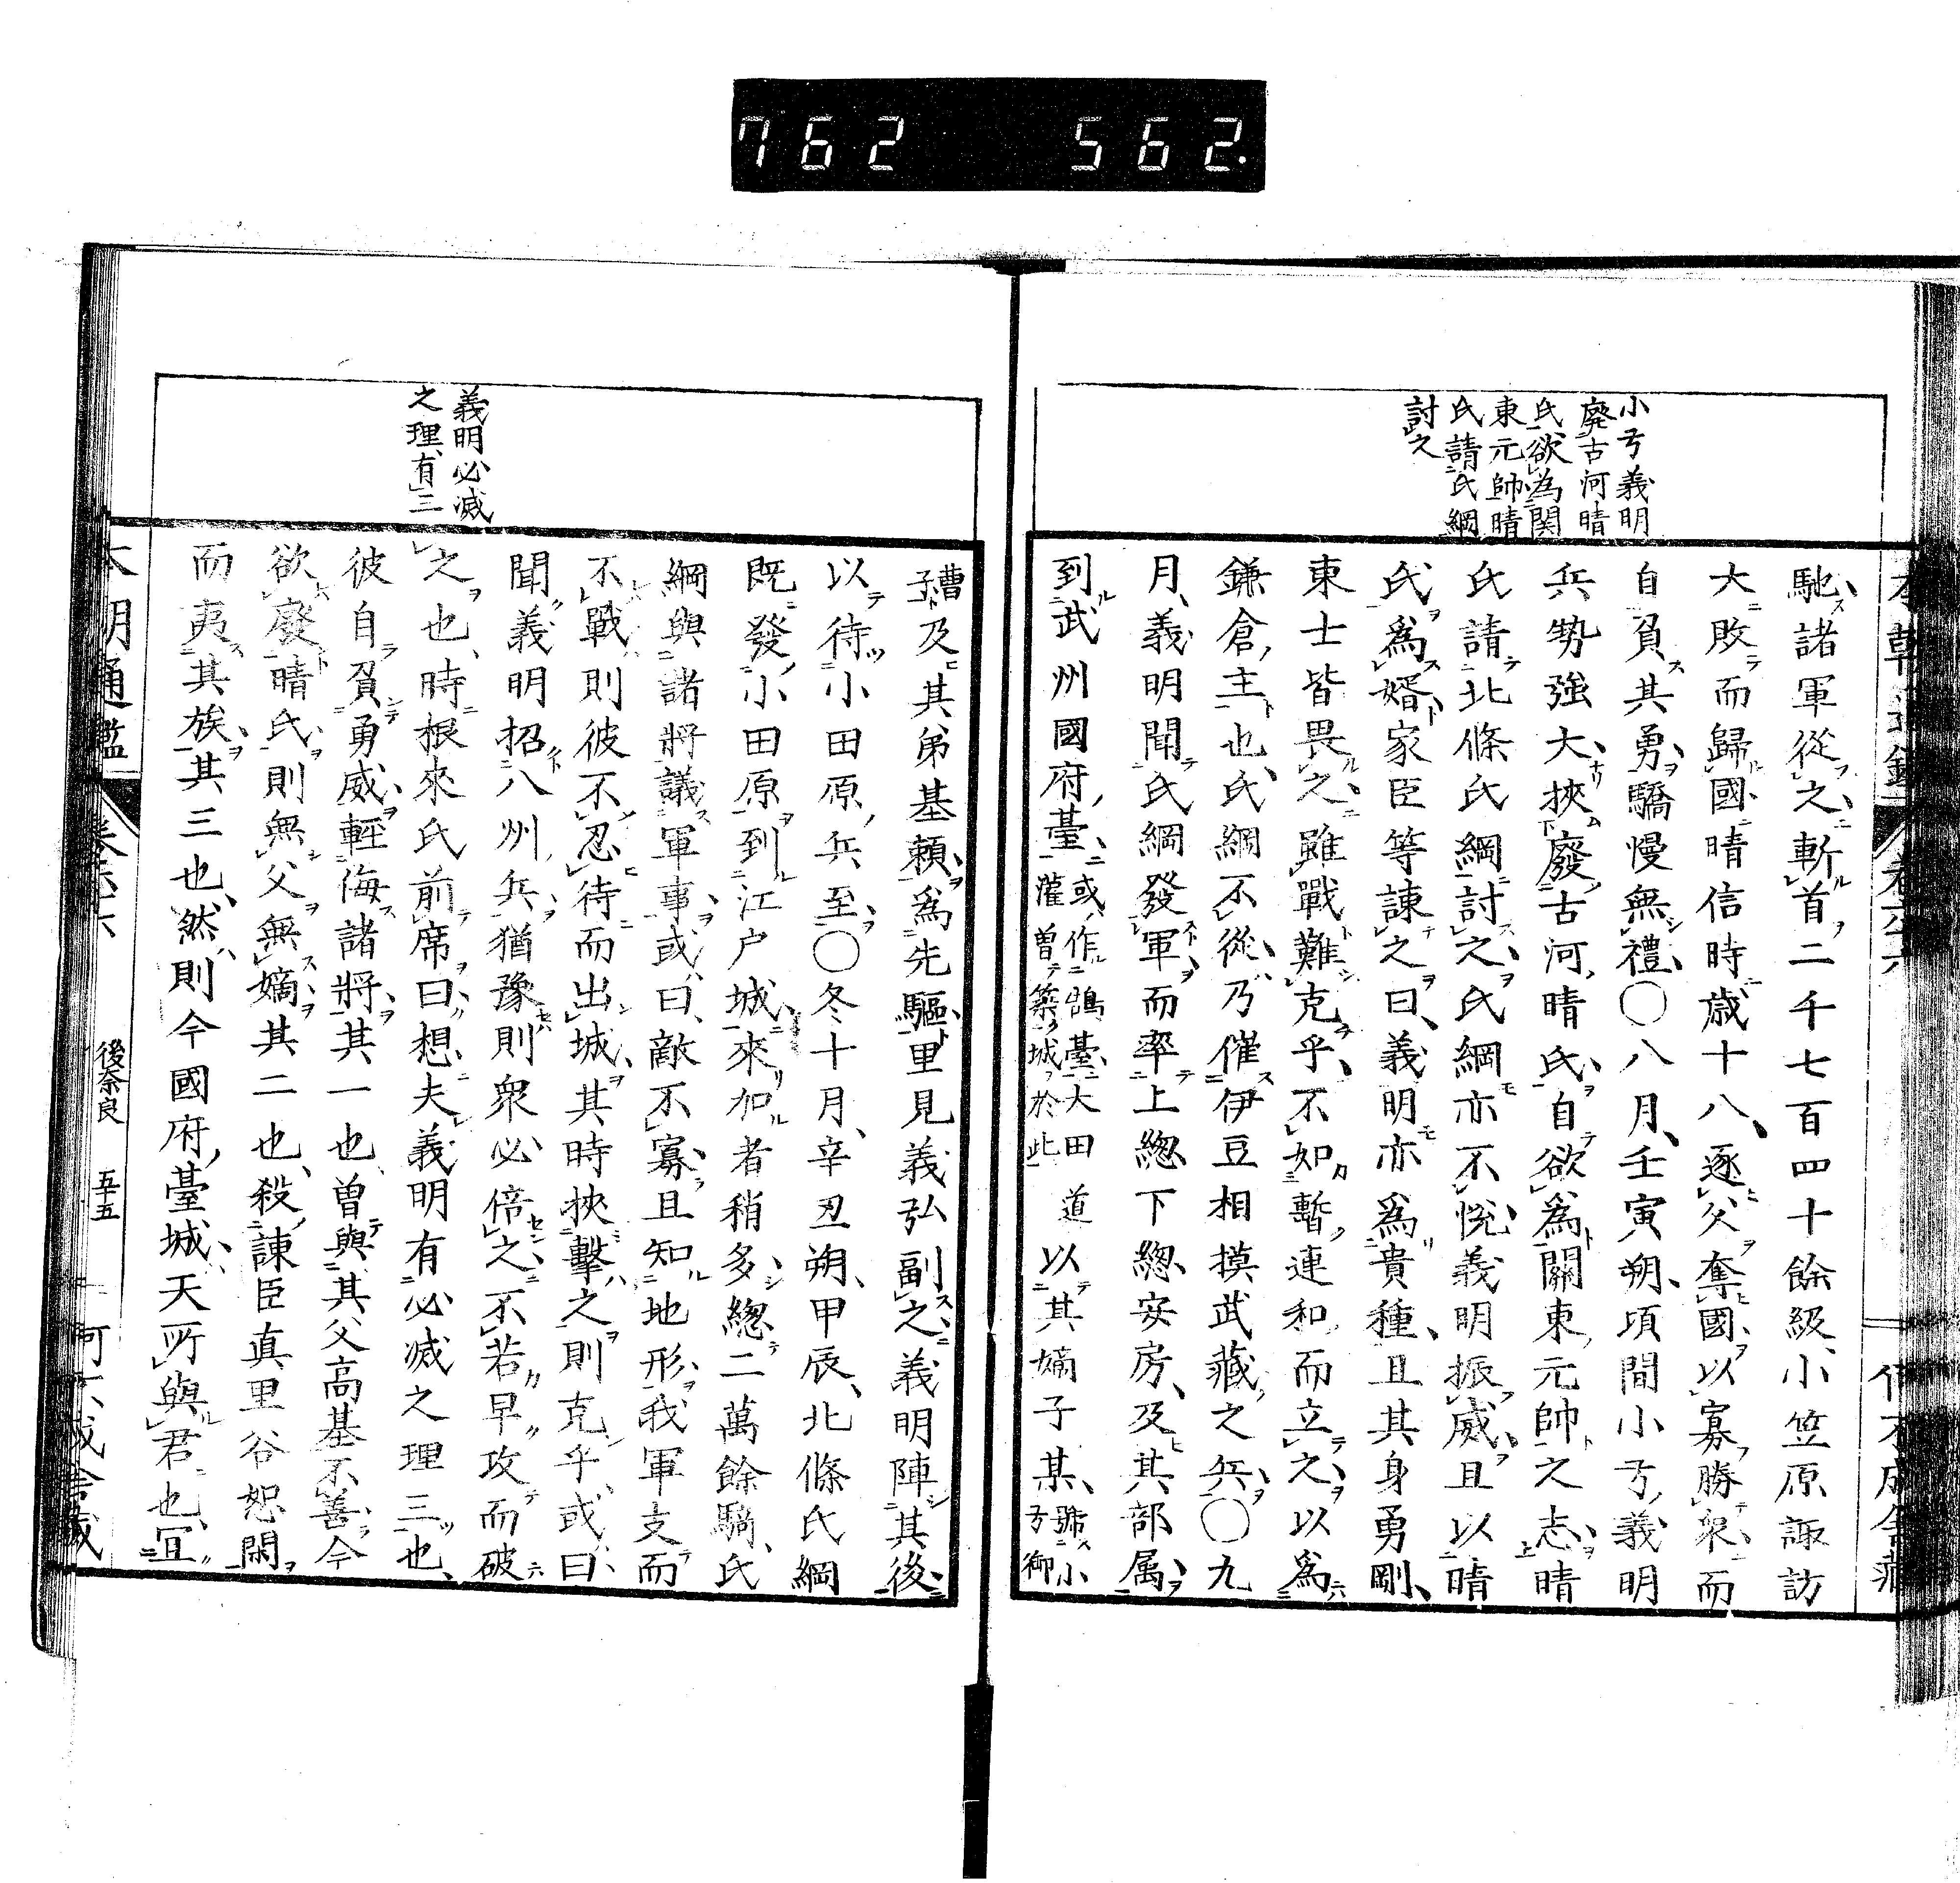 762 562.
小弓義明
廢古河晴
氏欲為関
東元帥晴
氏請氏綱
討之
馳諸軍從之斬首二千七百四十餘級小笠原諏訪
大敗而歸國晴信時歳十八逐父奪國以寡勝衆而
自負其勇驕慢無禮〇八月壬寅朔項間小弓義明
兵勢強大挾廢古河晴氏自欲爲關東元帥之志晴
氏請北條氏綱討之氏綱亦不悦義明振威且以晴
氏爲婿家臣等諫之曰義明亦爲貴種且其身勇剛
東士皆畏之雖戰難克乎不如暫連和而立之以爲
鎌倉主也氏綱不從乃催伊豆相摸武藏之兵〇九
月義明聞氏綱發軍而率上總下總安房及其部属
到武州國府臺或作鵠臺大田道灌曽築城於此以其嫡子某號小弓御
曹子及其弟基頼爲先驅里見義弘副之義明陣其後
以待小田原兵至〇冬十月辛丑朔甲辰北條氏綱
既發小田原到江户城來加者稍多總二萬餘騎氏
綱與諸將議軍事或曰敵不寡且知地形我軍支而
不戰則彼不忍待而出城其時挾擊之則克乎或曰
聞義明招八州兵猶豫則衆必倍之不若早攻而破
之也時根來氏前席曰想夫義明有必滅之理三也
彼自負勇威輕侮諸將其一也曽與其父高基不善今
欲廢晴氏則無父無嫡其二也殺諫臣真里谷恕閑
而夷其族其三也然則今國府臺城天所與君也宜
義明必滅
之理有三
後奈良 五十五